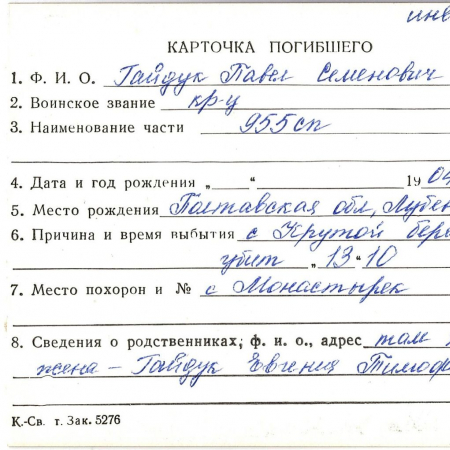 инв
КАРТОЧКА ПОГИБШЕГО
1. Ф. И. О. Гайдук Павел Семенович
2. Воинское звание кр-ц
3. Наименование части 955сп
4. Дата и год рождения „ “ 1904
5. Место рождения Полтавская обл, Лубен
6. Причина и время выбытия с Крутой бере
убит „13“ 10
7. Место похорон и № с Монастырек
8. Сведения о родственниках, ф. и. о., адрес там
жена – Гайдук Евгения Тимоф
К.-Св. т. Зак. 5276